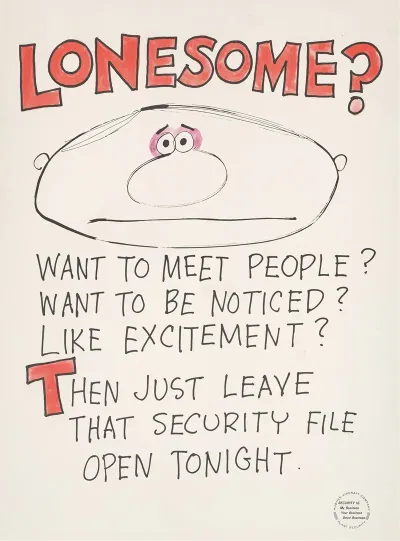 LONESOME?
WANT TO MEET PEOPLE?
WANT TO BE NOTICED?
LIKE EXCITEMENT?
THEN JUST LEAVE
THAT SECURITY FILE
OPEN TONIGHT.
SECURITY IS
My Business
Your Business
Good Business